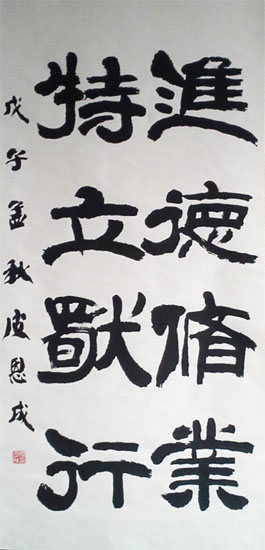 進德脩業
特立獨行
戊子孟秋皮恩成